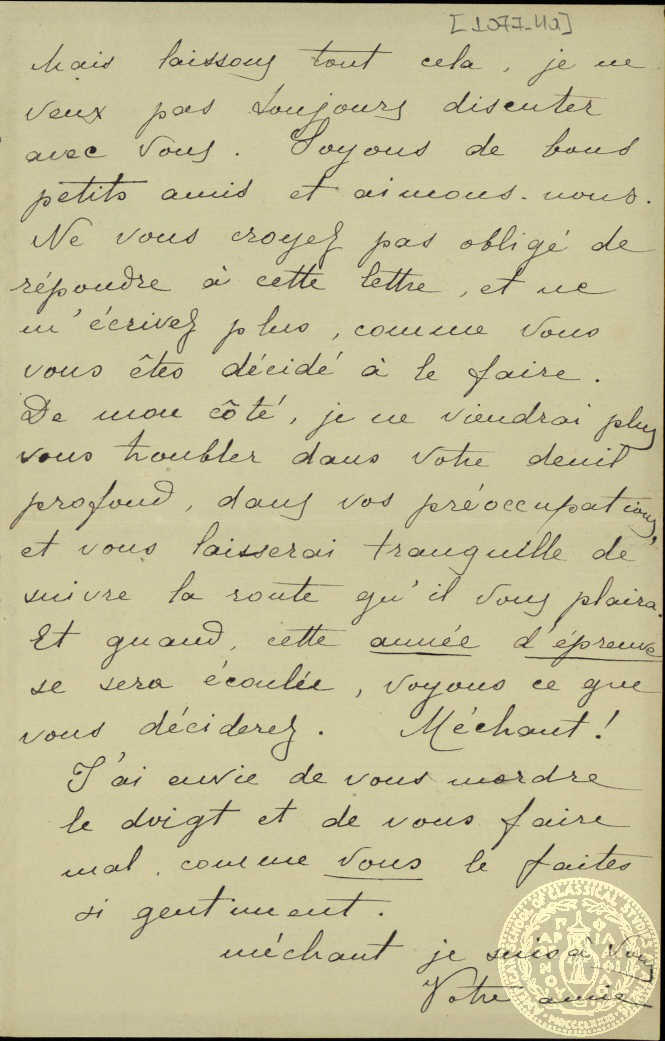 [1077-4a]
Mais laissons tout cela, je ne
veux pas toujours discuter
avec vous. Soyons de bons
petits amis et aimons-nous.
Ne vous croyez pas obligé de
répondre à cette lettre, et ne
m'écrivez plus, comme vous
vous êtes décidé à le faire.
De mon côté, je ne viendrai plus
vous troubler dans votre deuil
profond, dans vos préoccupations,
et vous laisserai tranquille de
suivre la route qu'il vous plaira.
Et quand, cette année d'épreuve
se sera écoulée, voyons ce que
vous déciderez. Méchant!
J'ai envie de vous mordre
le doigt et de vous faire
mal, comme vous le faites
si gentiment.
méchant je suis à vous
Votre amie
AMERICAN SCHOOL OF CLASSICAL STUDIES
MDCCCLXXXI